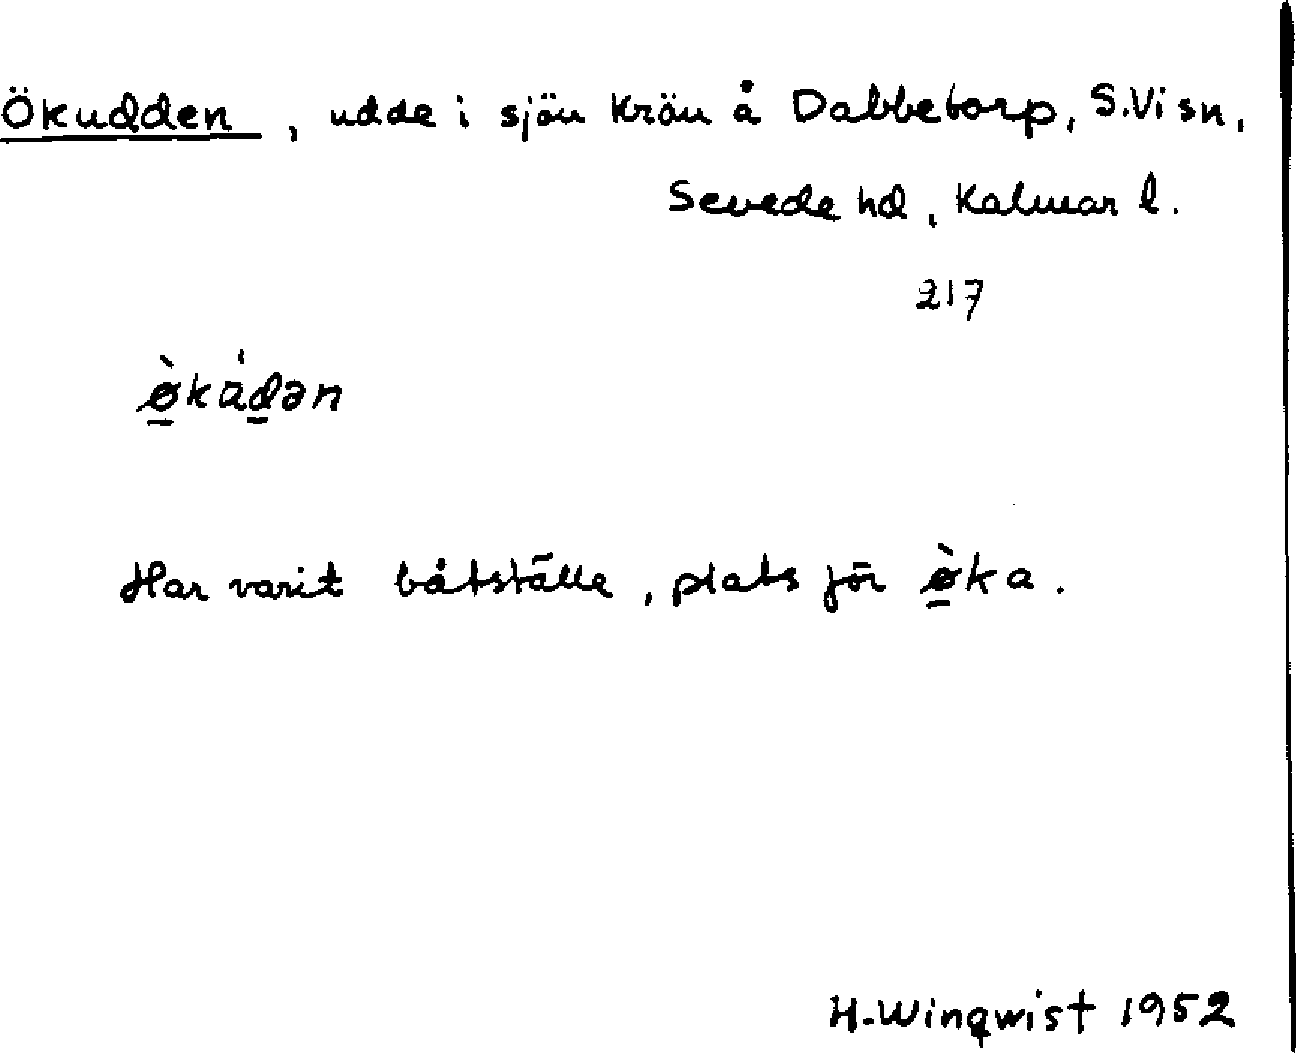 Ökudden, udde i sjön Krön å Dabbetorp, S.Vi sn,
Sevede hd, Kalmar l.
217
ø̱̀káḏən
Har varit båtställe, plats för ø̱̀ka.
H. Winqwist 1952